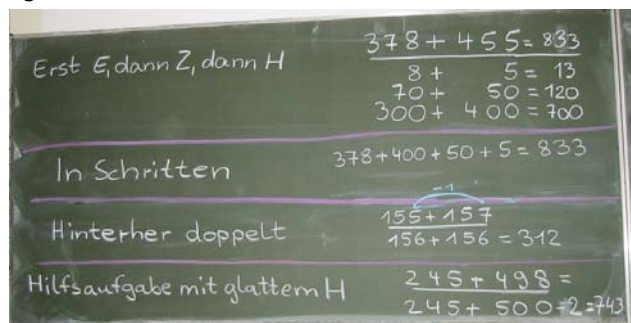 378 + 455 = 833
Erst E, dann Z, dann H
8 + 5 = 13
70 + 50 = 120
300 + 400 = 700
In Schritten
378 + 400 + 50 + 5 = 833
-1
Hinterher doppelt
155 + 157
156 + 156 = 312
Hilfsaufgabe mit glattem H
245 + 498 =
245 + 500 - 2 = 743